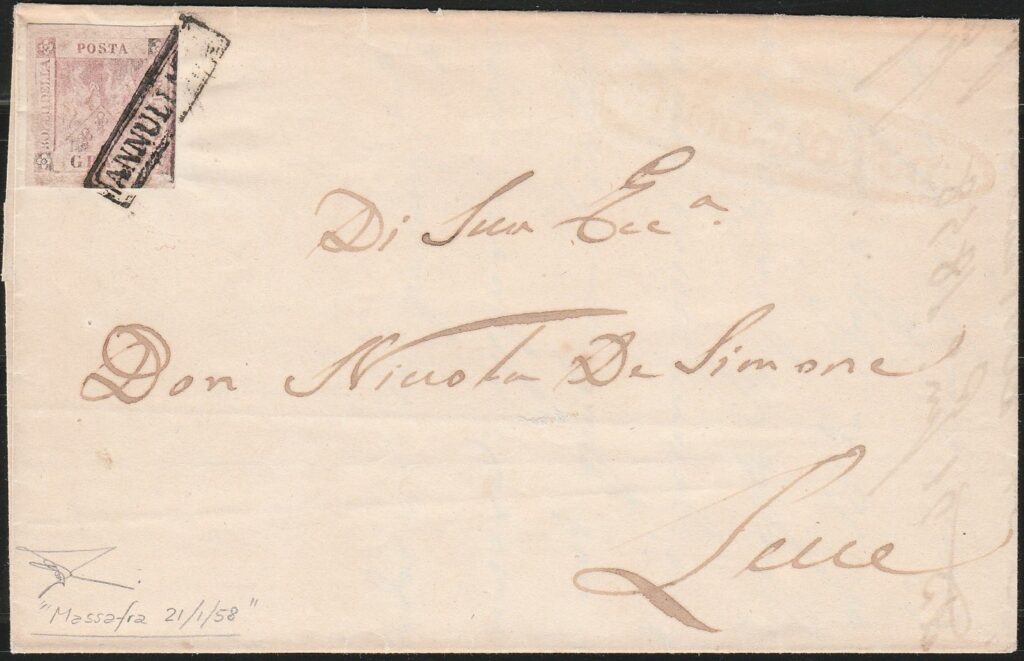 POSTA
BOLLO DELLA
G
ANNULLA
Di Sua Ecc.ª
Don Nicola De Simone
Lecce
"Massafra 21/1/58"